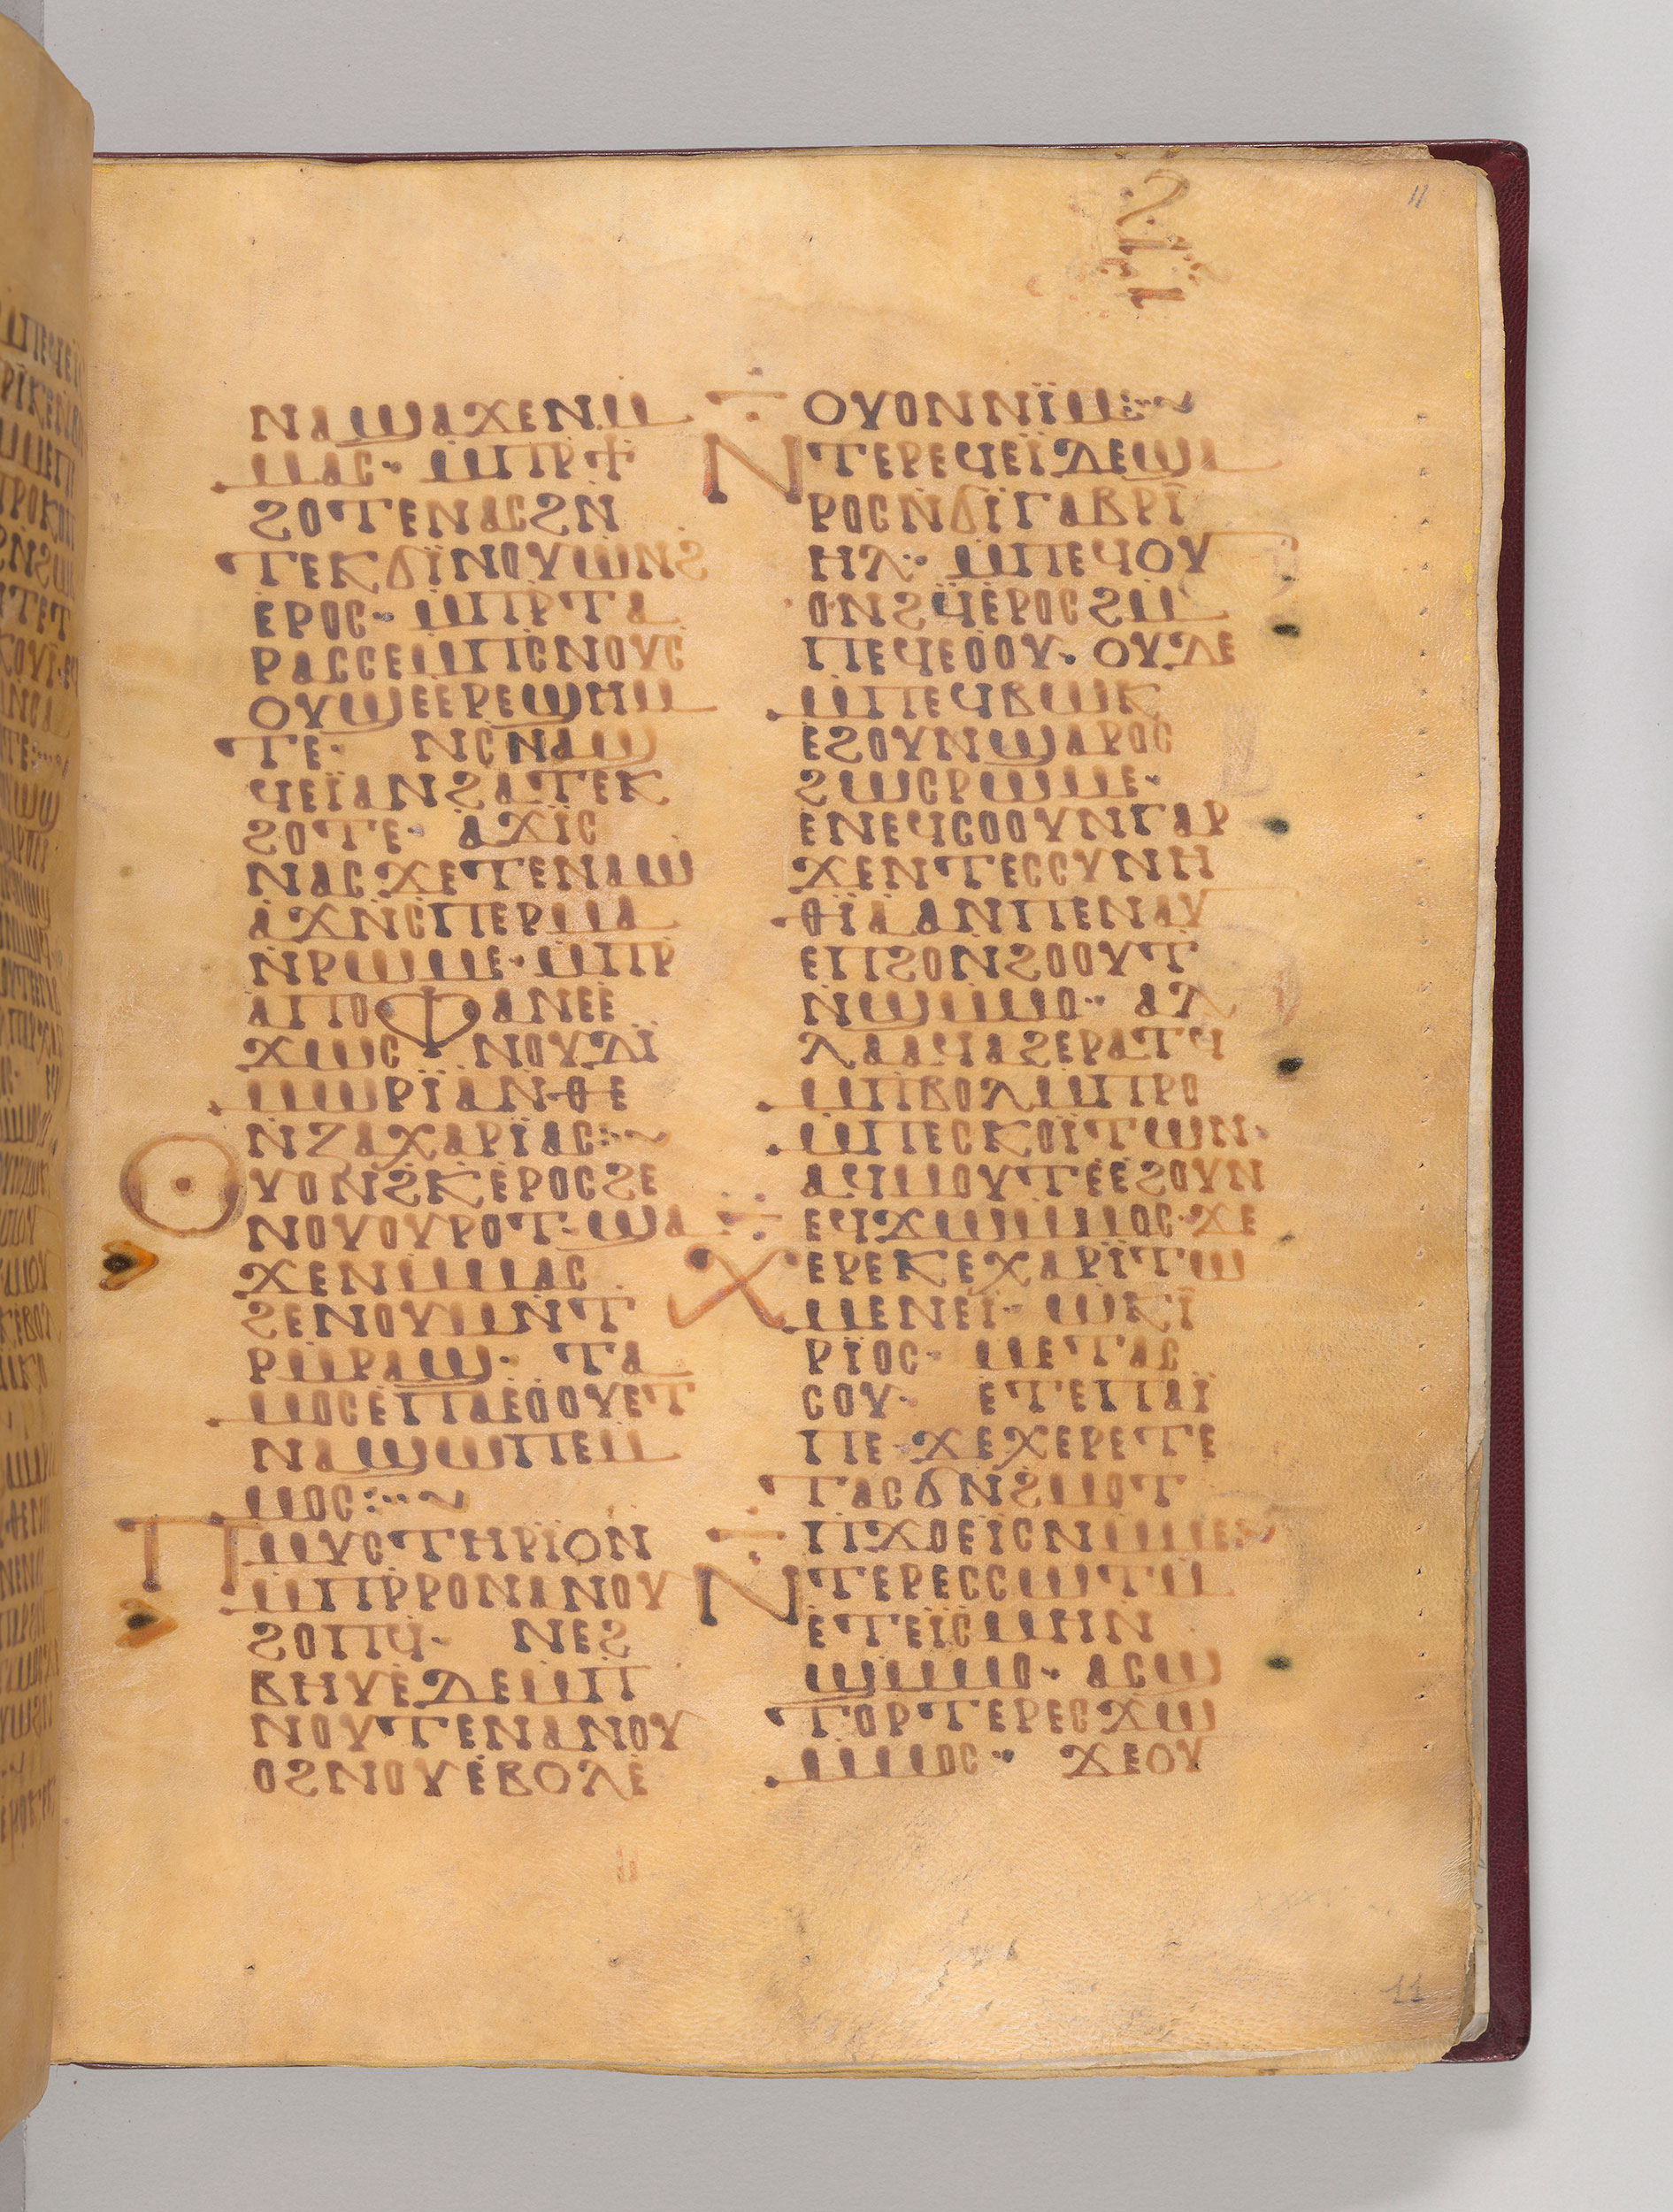 11
ⲛⲁϣⲁϫⲉⲛⲙ
ⲙⲁⲥ· ⲙⲡⲣϯ
ϩⲟⲧⲉⲛⲁⲥϩⲛ
ⲧⲉⲕϭⲓ̈ⲛⲟⲩⲱⲛϩ
ⲉⲣⲟⲥ· ⲙⲡⲣⲧⲁ
ⲣⲁⲥⲥⲉⲙⲡⲥⲛⲟⲩⲥ
ⲟⲩϣⲉⲉⲣⲉϣⲏⲙ
ⲧⲉ· ⲛⲥⲛⲁϣ
ϥⲉⲓ̈ⲁⲛϩⲁⲧⲉⲕ
ϩⲟⲧⲉ· ⲁϫⲓ̈ⲥ
ⲛⲁⲥϫⲉⲧⲉⲛⲁⲱ
ⲁϫⲛⲥⲡⲉⲣⲙⲁ
ⲛⲣⲱⲙⲉ· ⲙⲡⲣ
ⲁⲡⲟⲫⲁⲛⲉⲉ
ϫⲱⲥ ⲛⲟⲩⲇⲓ̈
ⲙⲱⲣⲓ̈ⲁⲛⲑⲉ
ⲛⲍⲁⲭⲁⲣⲓ̈ⲁⲥ:~
ⲟⲩⲟⲛϩⲕⲉⲣⲟⲥϩⲉ
ⲛⲟⲩⲟⲩⲣⲟⲧ· ϣⲁ
ϫⲉⲛⲙⲙⲁⲥ
ϩⲉⲛⲟⲩⲙⲛⲧ
ⲣⲙⲣⲁϣ· ⲧⲁ
ⲙⲟⲥⲉⲡⲁⲉⲟⲟⲩⲉⲧ
ⲛⲁϣⲱⲡⲉⲙ
ⲙⲟⲥ:··~
ⲡⲙⲩⲥⲧⲏⲣⲓ̈ⲟⲛ
ⲙⲡⲣⲣⲟⲛⲁⲛⲟⲩ
ϩⲟⲡϥ· ⲛⲉϩ
ⲃⲏⲩⲉⲇⲉⲙⲡ
ⲛⲟⲩⲧⲉⲛⲁⲛⲟⲩ
ⲟϩⲛⲟⲩⲉⲃⲟⲗⲉ
ⲟⲩⲟⲛⲛⲓ̈ⲙ:·~
ⲛⲧⲉⲣⲉϥⲉⲓ̈ⲇⲉϣⲁ
ⲣⲟⲥⲛϭⲓ̈ⲅⲁⲃⲣⲓ̈
ⲏⲗ· ⲙⲡⲉϥⲟⲩ
ⲟⲛϩϥⲉⲣⲟⲥϩⲙ
ⲡⲉϥⲉⲟⲟⲩ· ⲟⲩⲇⲉ
ⲙⲡⲉϥⲃⲱⲕ
ⲉϩⲟⲩⲛϣⲁⲣⲟⲥ
ϩⲱⲥⲣⲱⲙⲉ·
ⲉⲛⲉϥⲥⲟⲟⲩⲛⲅⲁⲣ
ϫⲉⲛⲧⲉⲥⲥⲩⲛⲏ
ⲑⲓ̈ⲁⲁⲛⲡⲉⲛⲁⲩ
ⲉⲡϩⲟⲛϩⲟⲟⲩⲧ
ⲛϣⲙⲙⲟ· ⲁⲗ
ⲗⲁⲁϥⲁϩⲉⲣⲁⲧϥ
ⲙⲡⲃⲟⲗⲙⲡⲣⲟ
ⲙⲡⲉⲥⲕⲟⲓ̈ⲧⲱⲛ·
ⲁϥⲙⲟⲩⲧⲉⲉϩⲟⲩⲛ
ⲉϥϫⲱⲙⲙⲟⲥ·ϫⲉ
ⲭⲉⲣⲉⲕⲉⲭⲁⲣⲓ̈ⲧⲱ
ⲙⲉⲛⲉⲓ̈· ⲱⲕⲓ̈
ⲣⲓ̈ⲟⲥ· ⲙⲉⲧⲁⲥ
ⲥⲟⲩ· ⲉⲧⲉⲡⲁⲓ̈
ⲡⲉ·ϫⲉⲭⲉⲣⲉⲧⲉ
ⲧⲁⲥϭⲛϩⲙⲟⲧ
ⲡϫⲟⲉⲓⲥⲛⲙⲙⲉ
ⲛⲧⲉⲣⲉⲥⲥⲱⲧⲙ
ⲉⲧⲉⲓ̈ⲥⲙⲏⲛ
ϣⲙⲙⲟ· ⲁⲥϣ
ⲧⲟⲣⲧⲉⲣⲉⲥϫⲱ
ⲙⲙⲟⲥ· ϫⲉⲟⲩ
11